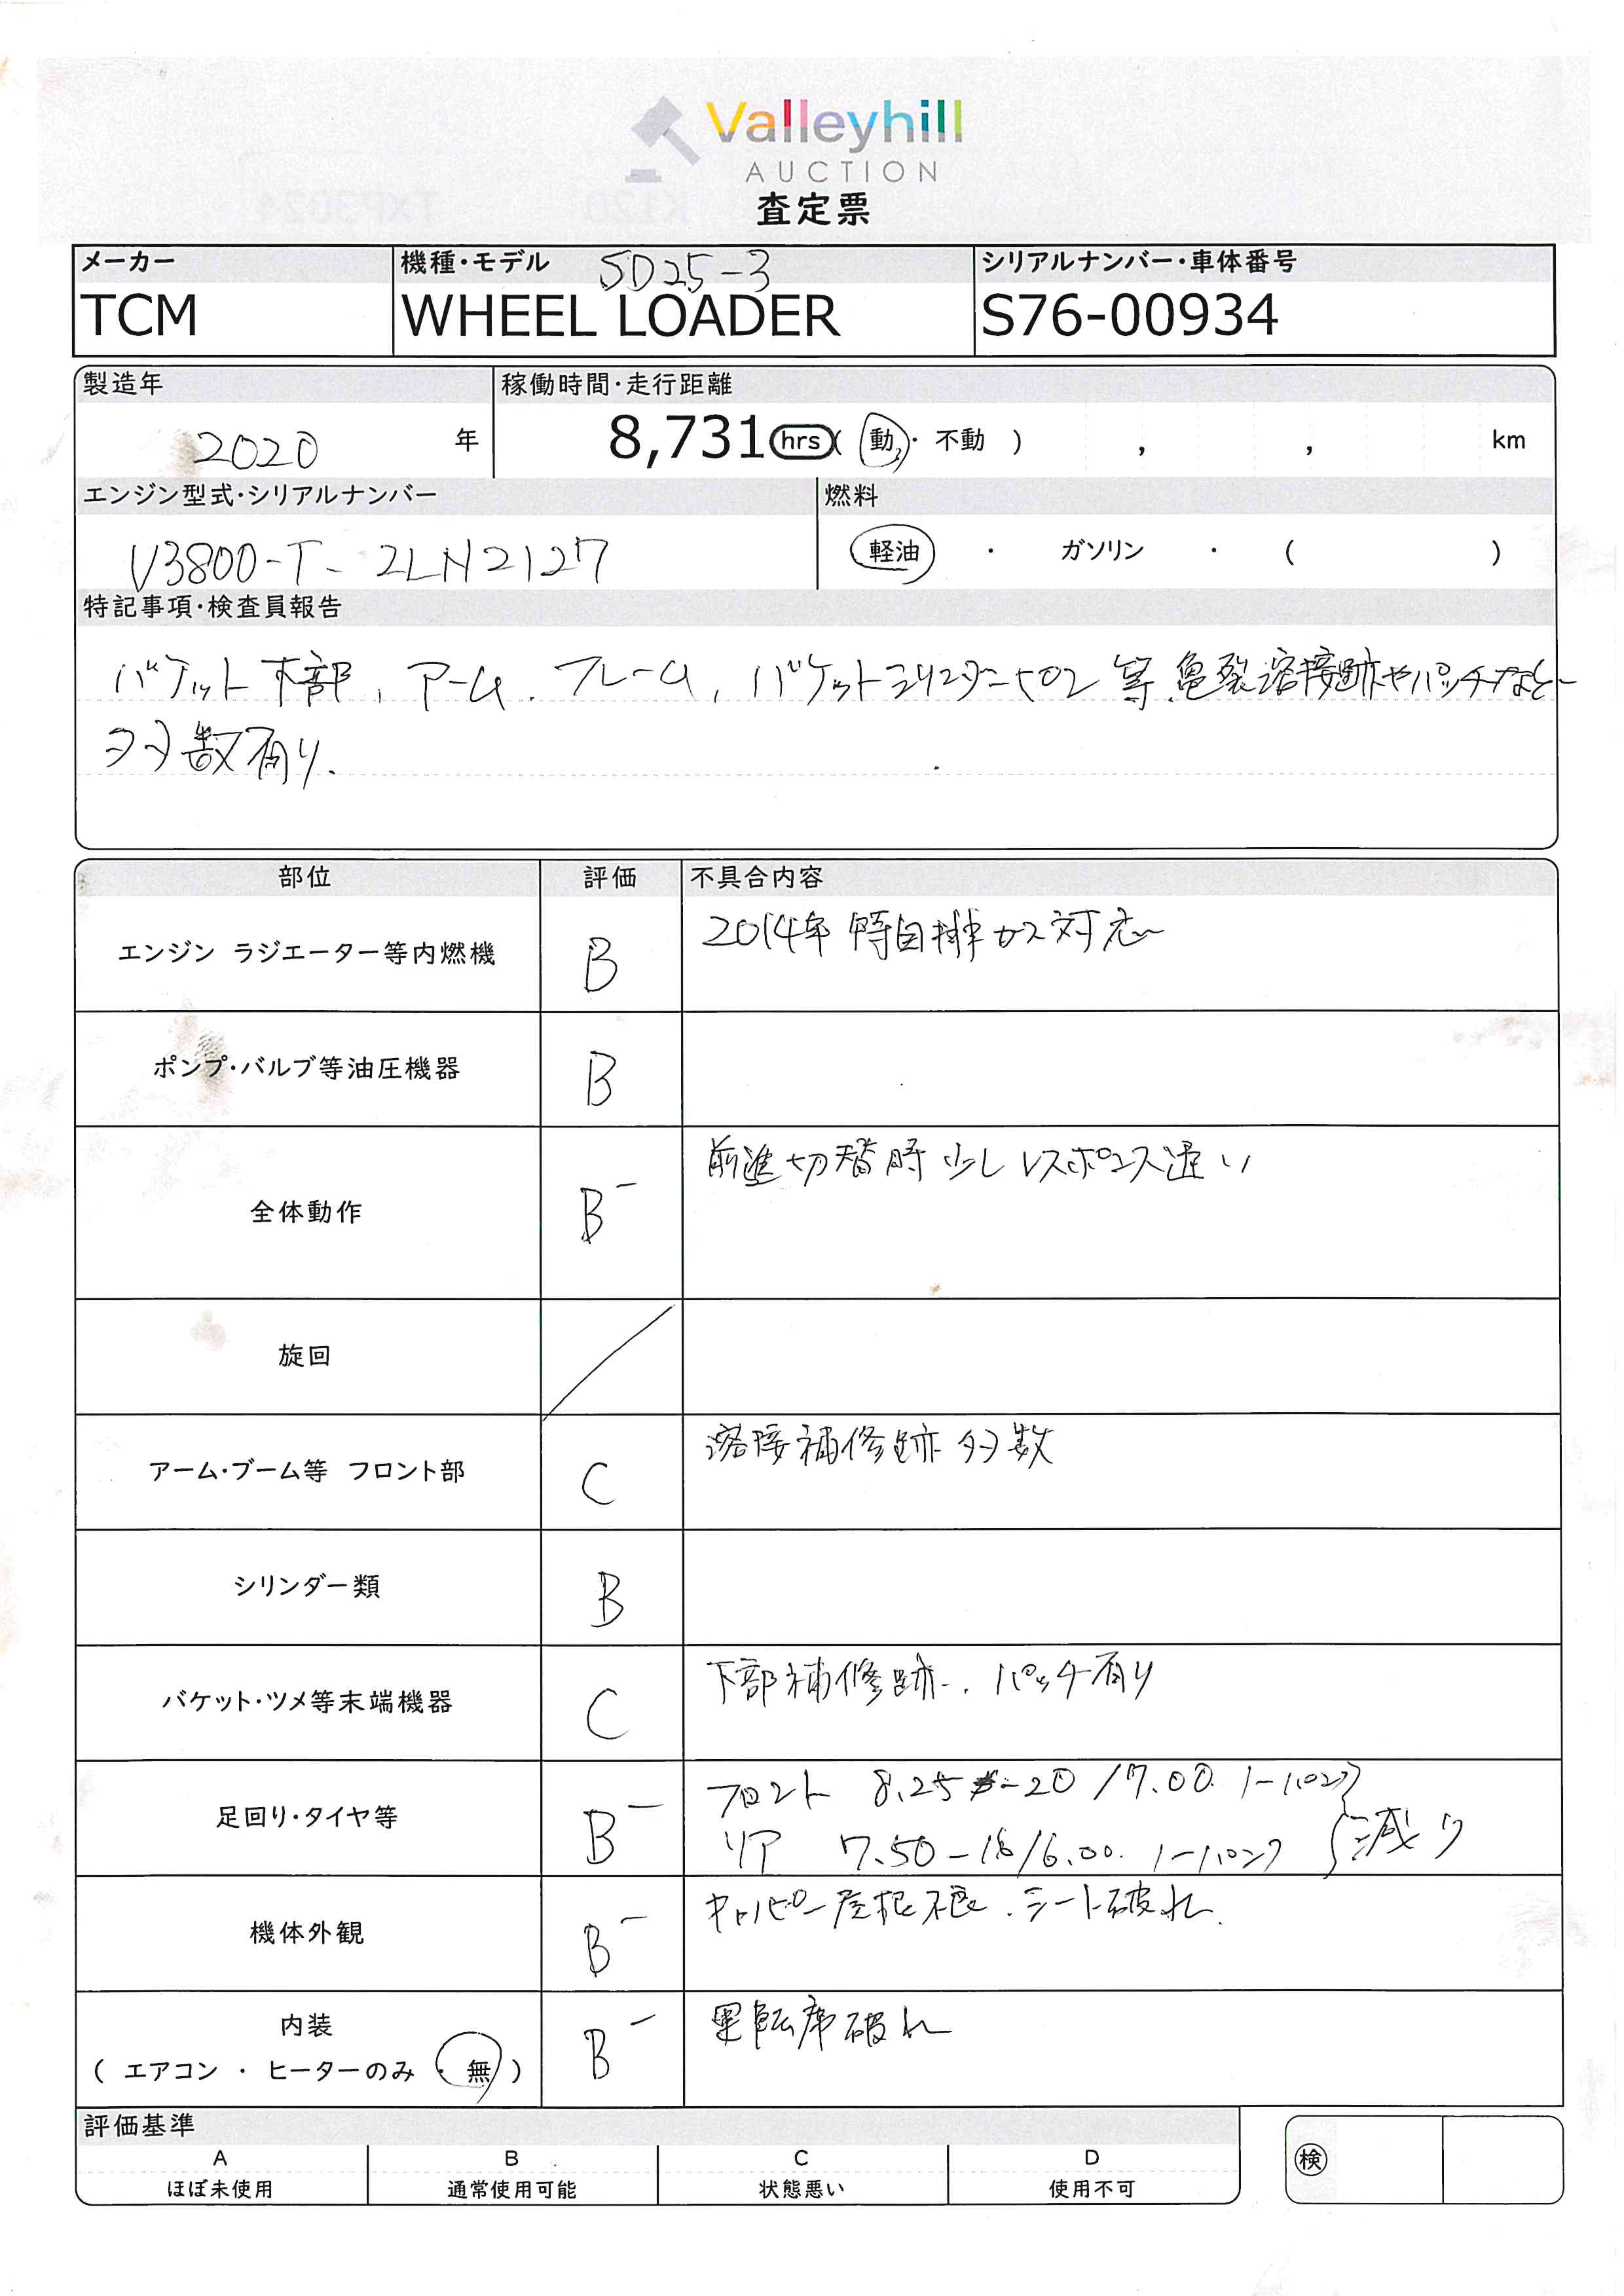 Valleyhill
AUCTION
査定票
メーカー
機種・モデル SD25-3
シリアルナンバー・車体番号
TCM
WHEEL LOADER
S76-00934
製造年
稼働時間・走行距離
2020 年
8,731 hrs ( 動 ・ 不動 ) , , km
エンジン型式・シリアルナンバー
燃料
V3800-T- 2LN2127
軽油 ・ ガソリン ・ ( )
特記事項・検査員報告
バケット下部、アーム、フレーム、バケットシリンダー 等、亀裂溶接跡やパッチなど
多数有り.
部位 評価 不具合内容
エンジン ラジエーター等内燃機 B 2014年 特自排ガス対応
ポンプ・バルブ等油圧機器 B
全体動作 B- 前進切替時 少しレスポンス遅い
旋回
アーム・ブーム等 フロント部 C 溶接補修跡 多数
シリンダー類 B
バケット・ツメ等末端機器 C 下部補修跡、パッチ有り
足回り・タイヤ等 B- フロント 8.25-20 /7.00. ノーパンク
リア 7.50-18/6.00. ノーパンク 減り
機体外観 B- キャノピー屋根不良、シート破れ.
内装 B- 運転席破れ
( エアコン ・ ヒーターのみ ・ 無 )
評価基準
A B C D
ほぼ未使用 通常使用可能 状態悪い 使用不可
検